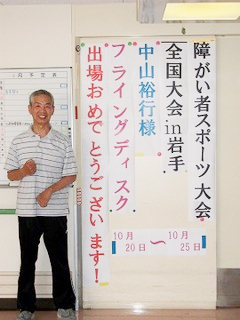 障がい者スポーツ大会
全国大会in岩手
中山裕行様
フライングディスク
出場おめでとうございます!
10月
20日
〜
10月
25日